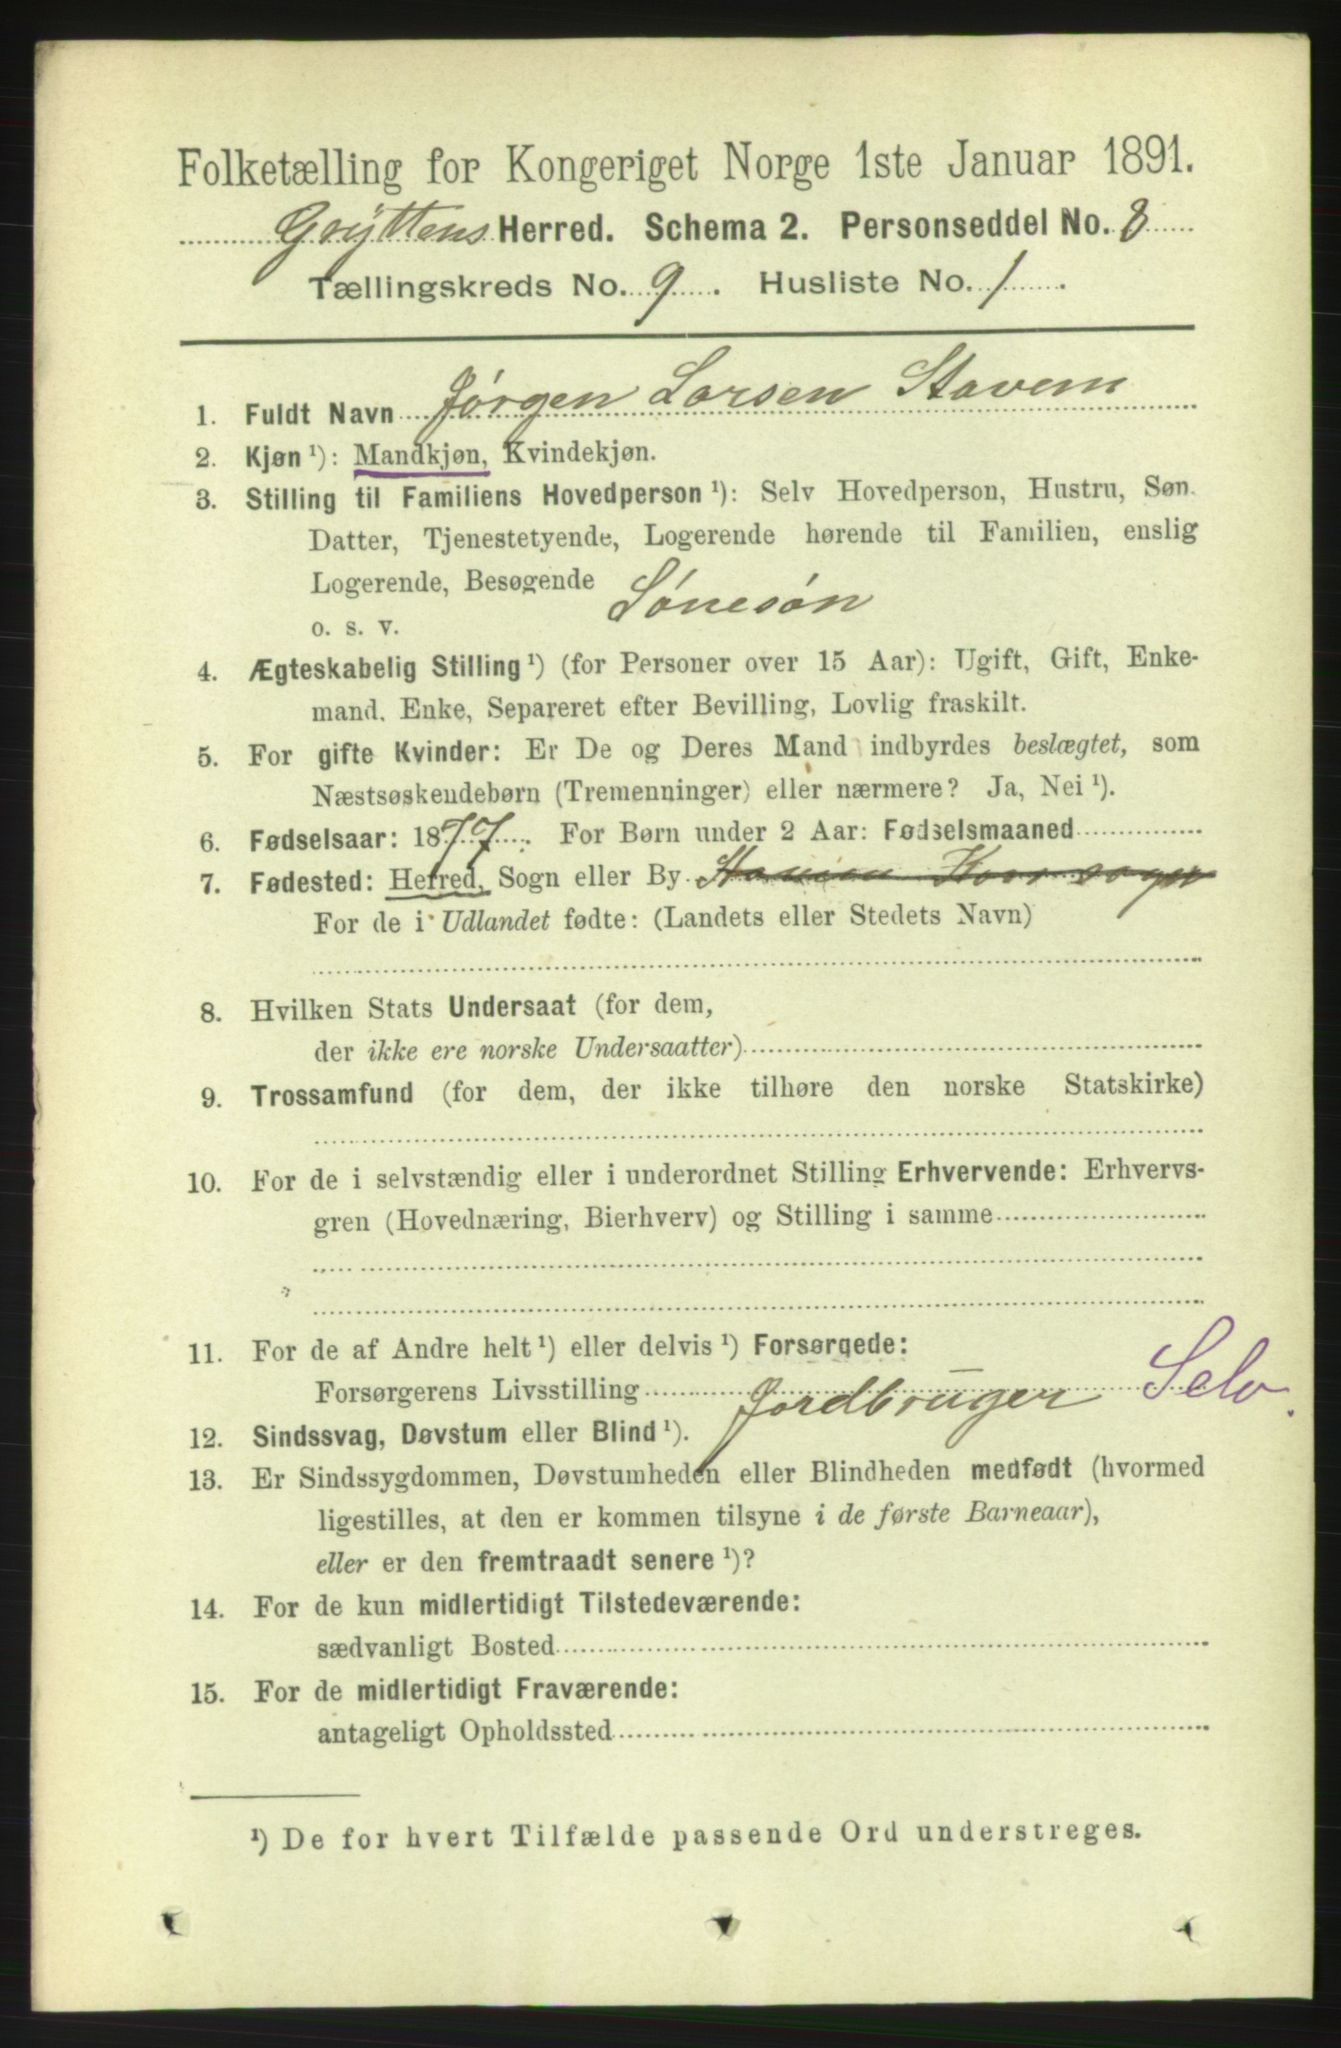 Folketælling for Kongeriget Norge 1ste Januar 1891.
Gryttens Herred. Schema 2. Personseddel No. 8
Tællingskreds No. 9. Husliste No. 1.
1. Fuldt Navn Jørgen Larsen Stavem
2. Kjøn ¹): Mandkjøn, Kvindekjøn.
3. Stilling til Familiens Hovedperson ¹): Selv Hovedperson, Hustru, Søn,
Datter, Tjenestetyende, Logerende hørende til Familien, enslig
Logerende, Besøgende
o. s. v. Sønesøn
4. Ægteskabelig Stilling ¹) (for Personer over 15 Aar): Ugift, Gift, Enke-
mand, Enke, Separeret efter Bevilling, Lovlig fraskilt.
5. For gifte Kvinder: Er De og Deres Mand indbyrdes beslægtet, som
Næstsøskendebørn (Tremenninger) eller nærmere? Ja, Nei ¹).
6. Fødselsaar: 1877. For Børn under 2 Aar: Fødselsmaaned
7. Fødested: Herred, Sogn eller By
For de i Udlandet fødte: (Landets eller Stedets Navn)
8. Hvilken Stats Undersaat (for dem,
der ikke ere norske Undersaatter)
9. Trossamfund (for dem, der ikke tilhøre den norske Statskirke)
10. For de i selvstændig eller i underordnet Stilling Erhvervende: Erhvervs-
gren (Hovednæring, Bierhverv) og Stilling i samme
11. For de af Andre helt ¹) eller delvis ¹) Forsørgede:
Forsørgerens Livsstilling Jordbruger Selv.
12. Sindssvag, Døvstum eller Blind ¹).
13. Er Sindssygdommen, Døvstumheden eller Blindheden medfødt (hvormed
ligestilles, at den er kommen tilsyne i de første Barneaar),
eller er den fremtraadt senere ¹)?
14. For de kun midlertidigt Tilstedeværende:
sædvanligt Bosted
15. For de midlertidigt Fraværende:
antageligt Opholdssted
¹) De for hvert Tilfælde passende Ord understreges.